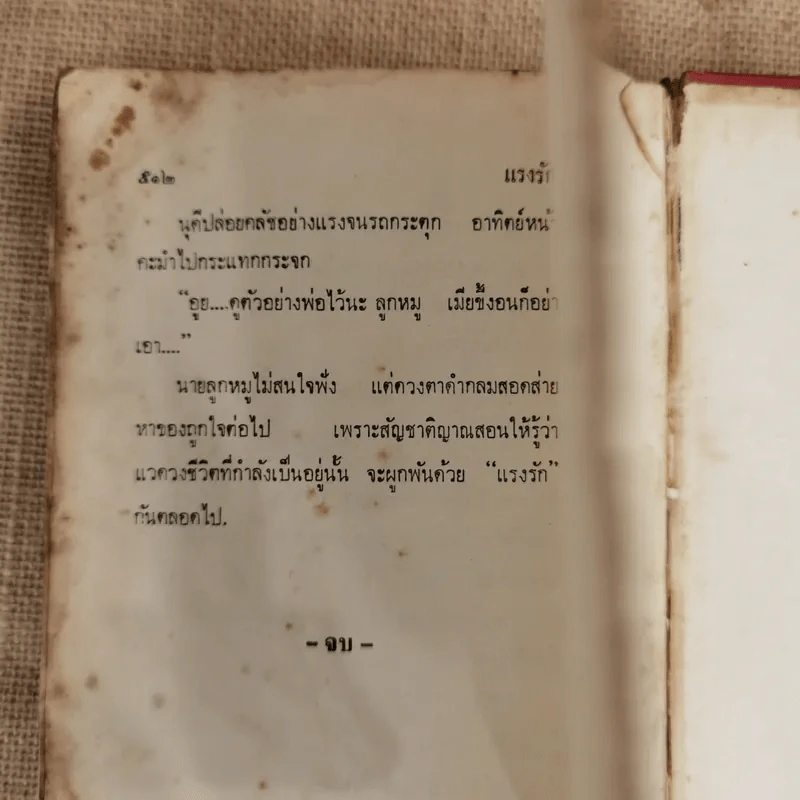 ๕๑๒ แรงรั
นุดีปล่อยคลัชอย่างแรงจนรถกระตุก อาทิตย์หน้
คะมำไปกระแทกกระจก
“อูย....ดูตัวอย่างพ่อไว้นะ ลูกหมู เมียขี้งอนก็อย่า
เอา....”
นายลูกหมูไม่สนใจฟัง แต่ดวงตาดำกลมสอดส่าย
หาของถูกใจต่อไป เพราะสัญชาติญาณสอนให้รู้ว่า
แวดวงชีวิตที่กำลังเป็นอยู่นั้น จะผูกพันด้วย “แรงรัก”
กันตลอดไป.
– จบ –